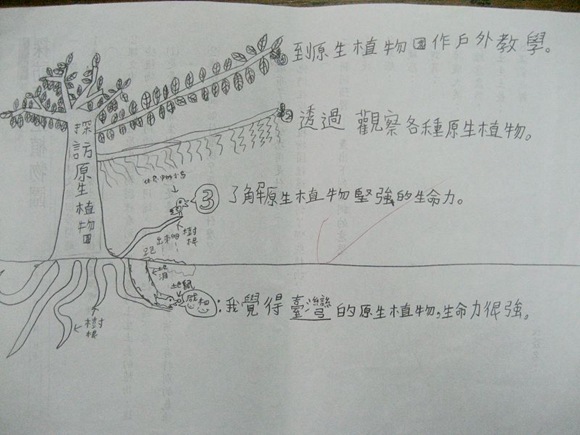 探訪原生植物囗
①到原生植物囗作戶外教學。
②透過 觀察各種原生植物。
③了解原生植物堅強的生命力。
樹根
地洞
地鼠
樹根
感想:我覺得臺灣的原生植物,生命力很強。